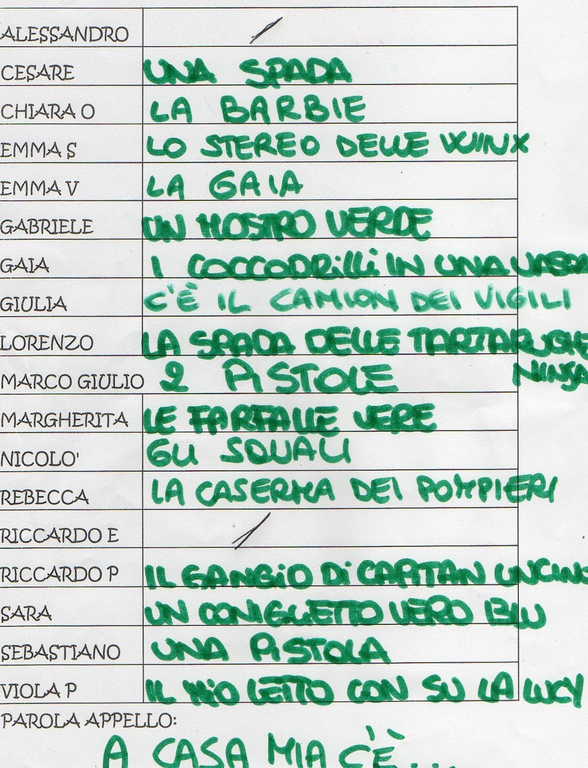 ALESSANDRO /
CESARE UNA SPADA
CHIARA O LA BARBIE
EMMA S LO STEREO DELLE WINX
EMMA V LA GAIA
GABRIELE UN MOSTRO VERDE
GAIA I COCCODRILLI IN UNA VASCA
GIULIA C'È IL CAMION DEI VIGILI
LORENZO LA SPADA DELLE TARTARUGHE
NINJA
MARCO GIULIO 2 PISTOLE
MARGHERITA LE FARFALLE VERE
NICOLO' GLI SQUALI
REBECCA LA CASERMA DEI POMPIERI
RICCARDO E /
RICCARDO P IL GANGIO DI CAPITAN UNCINO
SARA UN CONIGLIETTO VERO BLU
SEBASTIANO UNA PISTOLA
VIOLA P IL MIO LETTO CON SU LA LUCY
PAROLA APPELLO:
A CASA MIA C'È...